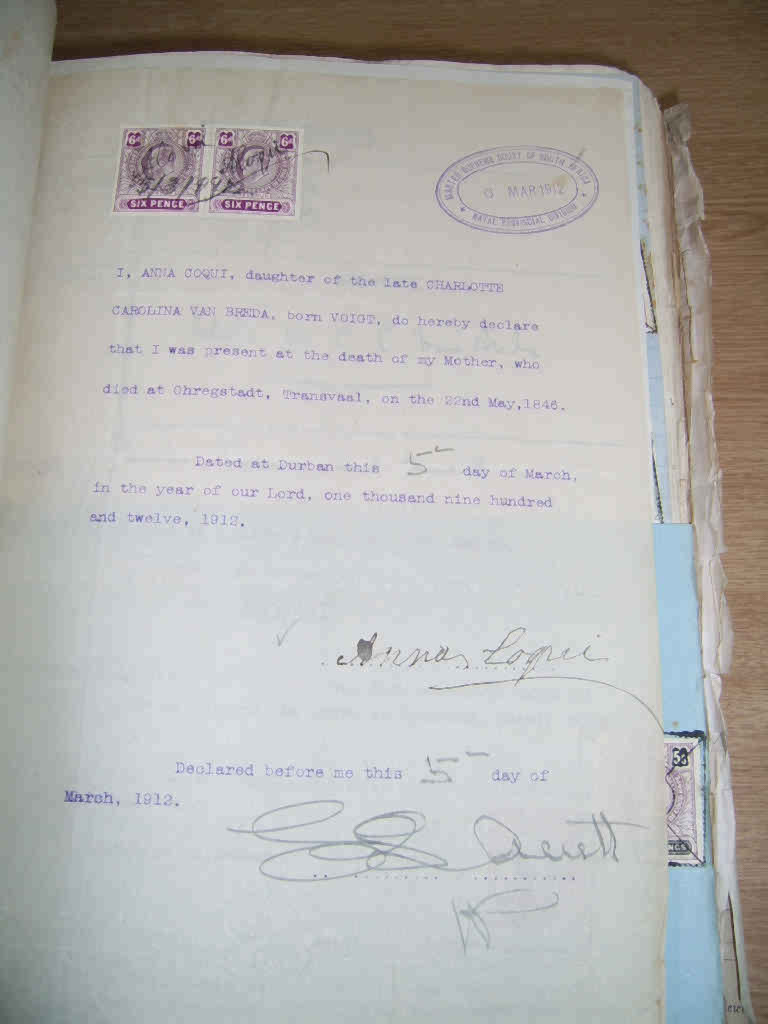 6d 6d 6d 6d
Anna Coqui
5/3/1912
SIX PENCE SIX PENCE
MASTER SUPREME COURT OF SOUTH AFRICA
MAR 1912
NATAL PROVINCIAL DIVISION
I, ANNA COQUI, daughter of the late CHARLOTTE
CAROLINA VAN BREDA, born VOIGT, do hereby declare
that I was present at the death of my Mother, who
died at Ohregstadt, Transvaal, on the 22nd May,1846.
Dated at Durban this 5 day of March,
in the year of our Lord, one thousand nine hundred
and twelve, 1912.
Anna Coqui
Declared before me this 5 day of
March, 1912.
JP